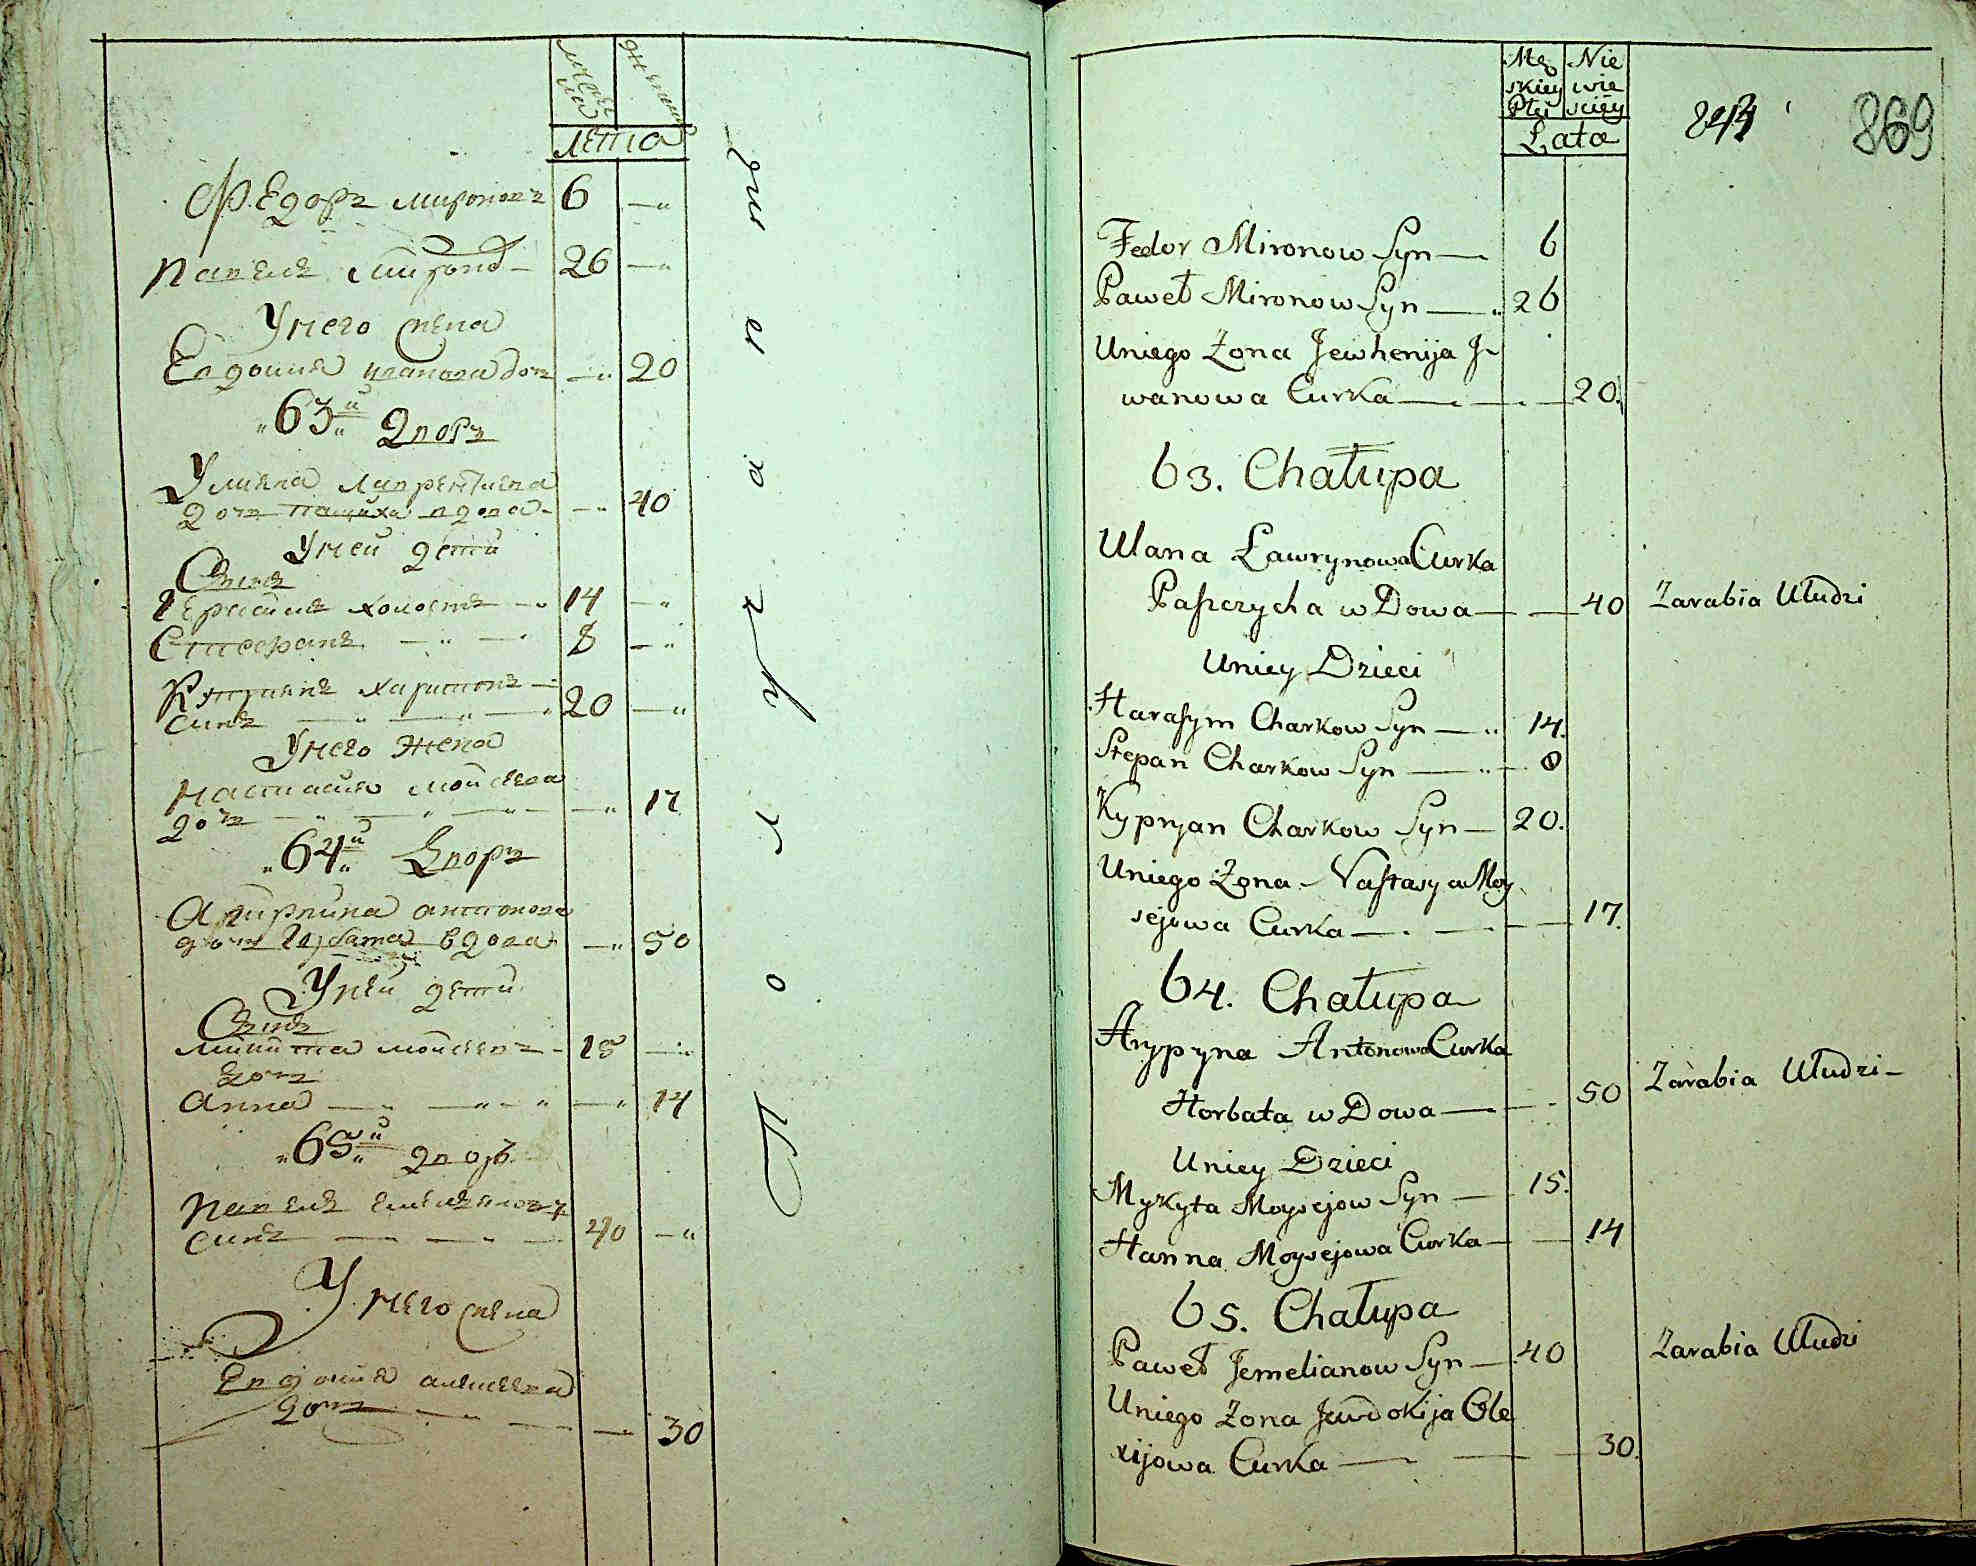 лѣта
Федоръ мироновъ 6
Павелъ миронов 26
У него жена
Евдокия иванова дочь 20
63й Дворъ
Улияна лаврентиева
дочь пащиха вдова 40
У ней дети
Синъ
Герасимъ холостъ 14
Стефанъ 8
Куприянъ харитонъ
синъ 20
У него жена
Настасия мойсеева
дочь 17
64й Дворъ
Агирпина антонова
дочь вдова 50
У ней дети
Синъ
Микита мойсеевъ 15
дочь
Анна 14
65й дворъ
Павелъ емельяновъ
синъ 40
У него жена
Евдокия алексеева
дочь 30
Męskiey Płci
Niewieściey
Lata
844
869
Fedor Mironow Syn 6
Paweł Mironow Syn 26
Uniego Żona Jewhenija J-
wanowa Curka 20.
63. Chałupa
Ulana Ławrynowa Curka
Paszczycha w Dowa 40 Zarabia Uludzi
Uniey Dzieci
Harasym Charkow Syn 14.
Stepan Charkow Syn 8
Kypryan Charkow Syn 20.
Uniego Żona Nastasya Moy
sejowa Curka 17.
64. Chałupa
Arypyna Antonowa Curka
Horbata w Dowa 50 Zarabia Uludzi
Uniey Dzieci
Mykyta Moysejow Syn 15.
Hanna Moysejowa Curka 14
65. Chałupa
Paweł Jemelianow Syn 40 Zarabia Uludzi
Uniego Żona Jewdokija Ole
xijowa Curka 30.